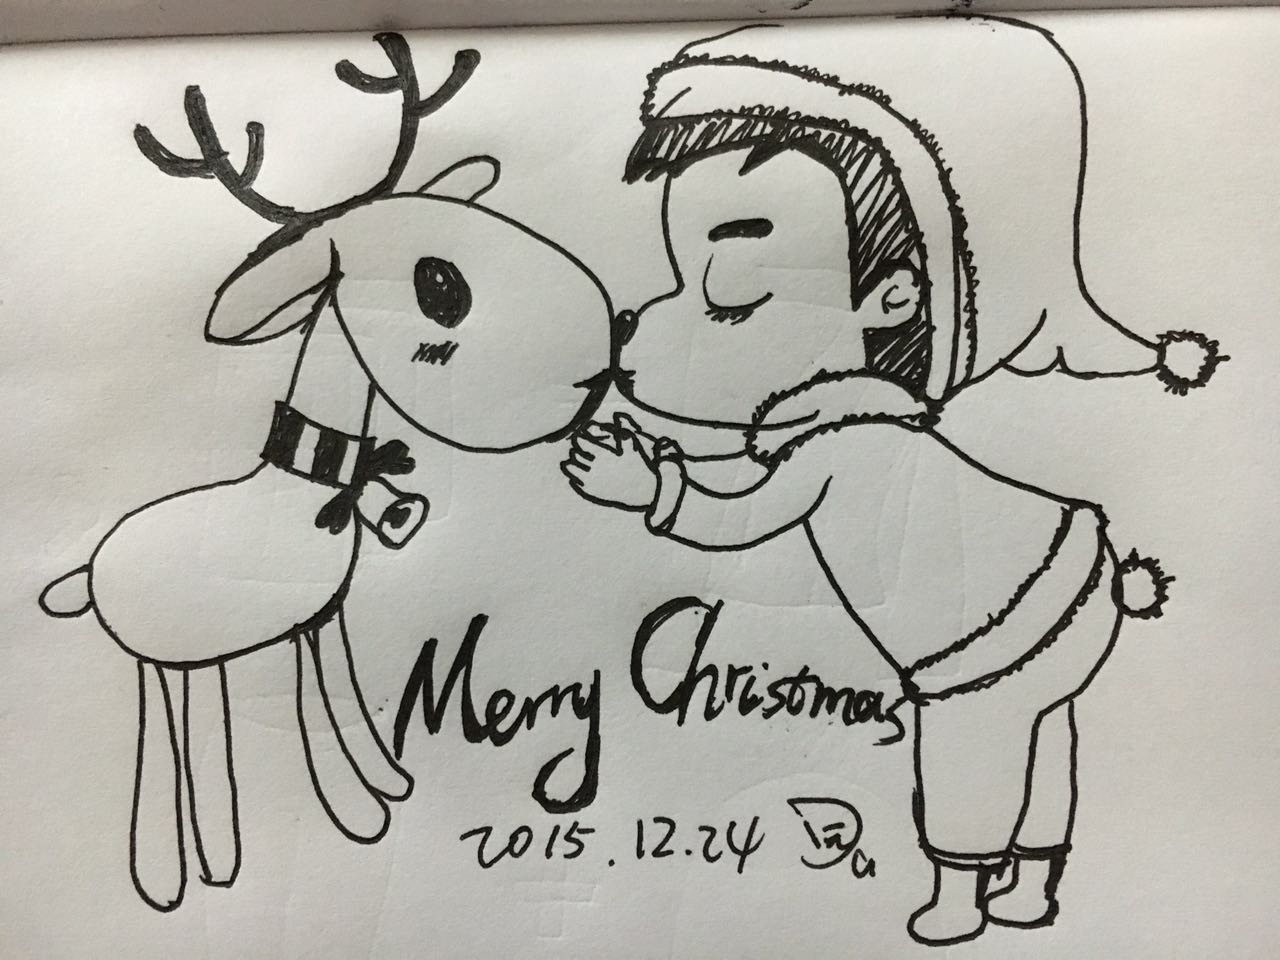 Merry Christmas
2015.12.24